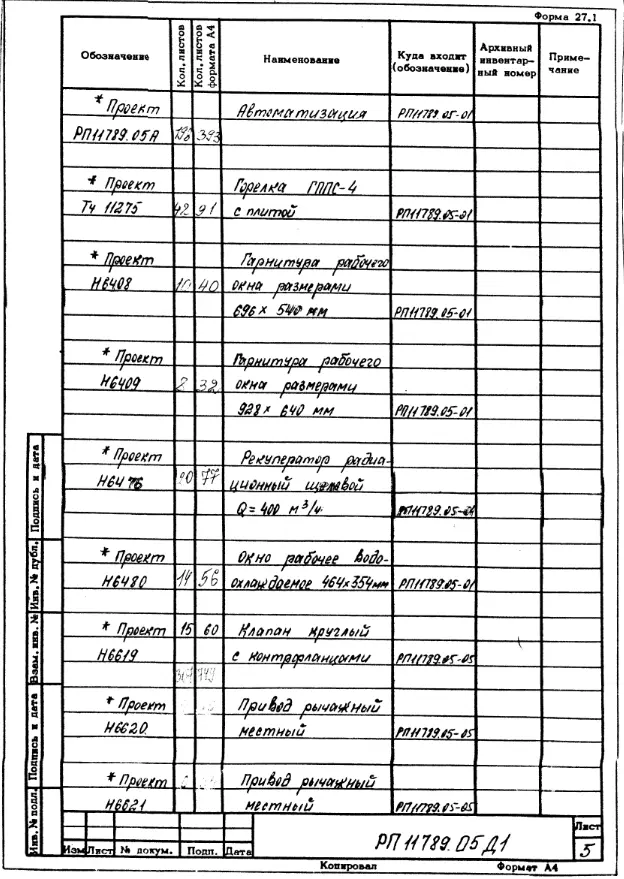 Форма 27.1
Обозначение Кол. листов Кол. листов формата А4 Наименование Куда входит (обозначение) Архивный инвентар-ный номер Приме-чание
* Проект Автоматизация РП11789.05-01
РП11789.05А 393
* Проект Горелка ГППС-4
ТЧ 11275 42 91 с плитой РП11789.05-01
* Проект Гарнитура рабочего
Н6408 10 40 окна размерами
696 × 540 мм РП11789.05-01
* Проект Гарнитура рабочего
Н6409 32 окна размерами
928 × 640 мм РП11789.05-01
* Проект Рекуператор радиа-
Н6476 77 ционный щелевой
Q = 400 м³/ч РП11789.05-01
* Проект Окно рабочее водо-
Н6480 14 56 охлаждаемое 464×354мм РП11789.05-01
* Проект 15 60 Клапан круглый
Н6619 с контрфланцами РП11789.05-05
* Проект Привод рычажный
Н6620 местный РП11789.05-05
* Проект Привод рычажный
Н6621 местный РП11789.05-05
Инв. № подл. Подпись и дата Взам. инв. № Инв. № дубл. Подпись и дата
РП 11789.05Д1
Лист
5
Изм Лист № докум. Подп. Дата
Копировал Формат А4